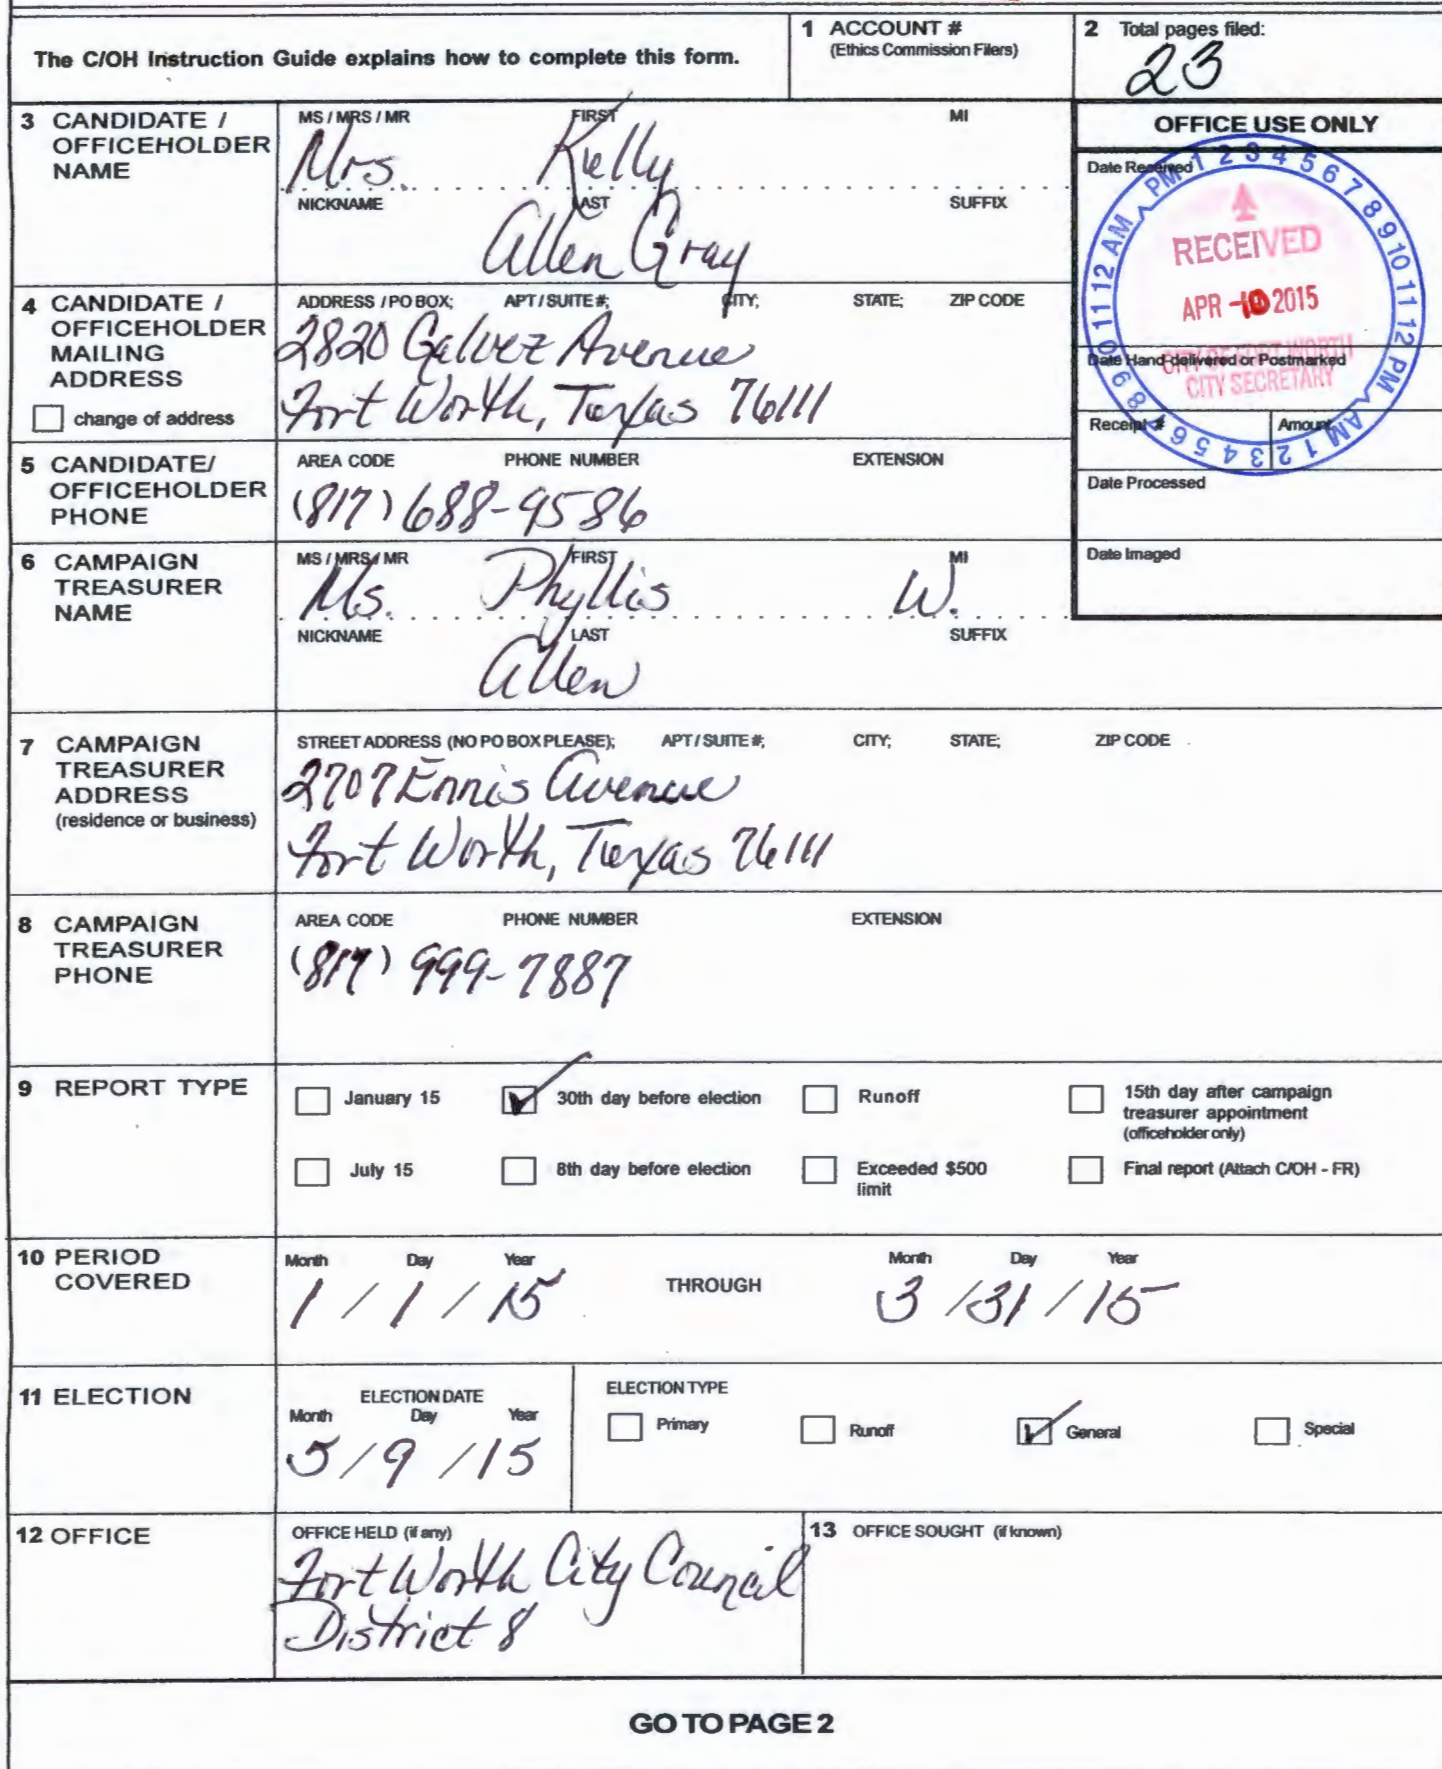 The C/OH Instruction Guide explains how to complete this form.
1 ACCOUNT #
(Ethics Commission Filers)
2 Total pages filed:
23
3 CANDIDATE / OFFICEHOLDER NAME
MS / MRS / MR FIRST MI
Mrs. Kelly
NICKNAME LAST SUFFIX
Allen Gray
OFFICE USE ONLY
Date Received
PM 1 2 3 4 5 6 7 8 9 10 11 12 PM
AM 1 2 3 4 5 6 7 8 9 10 11 12 AM
RECEIVED
APR -10 2015
CITY OF FORT WORTH
CITY SECRETARY
Date Hand-delivered or Postmarked
Receipt # Amount
Date Processed
Date Imaged
4 CANDIDATE / OFFICEHOLDER MAILING ADDRESS
change of address
ADDRESS / PO BOX; APT / SUITE #; CITY; STATE; ZIP CODE
2820 Galvez Avenue
Fort Worth, Texas 76111
5 CANDIDATE/ OFFICEHOLDER PHONE
AREA CODE PHONE NUMBER EXTENSION
(817) 688-9586
6 CAMPAIGN TREASURER NAME
MS / MRS / MR FIRST MI
Ms. Phyllis W.
NICKNAME LAST SUFFIX
Allen
7 CAMPAIGN TREASURER ADDRESS
(residence or business)
STREET ADDRESS (NO PO BOX PLEASE); APT / SUITE #; CITY; STATE; ZIP CODE
2707 Ennis Avenue
Fort Worth, Texas 76111
8 CAMPAIGN TREASURER PHONE
AREA CODE PHONE NUMBER EXTENSION
(817) 999-7887
9 REPORT TYPE
January 15
30th day before election
Runoff
15th day after campaign treasurer appointment (officeholder only)
July 15
8th day before election
Exceeded $500 limit
Final report (Attach C/OH - FR)
10 PERIOD COVERED
Month Day Year
1 / 1 / 15
THROUGH
Month Day Year
3 / 31 / 15
11 ELECTION
ELECTION DATE
Month Day Year
5 / 9 / 15
ELECTION TYPE
Primary
Runoff
General
Special
12 OFFICE
OFFICE HELD (if any)
Fort Worth City Council
District 8
13 OFFICE SOUGHT (if known)
GO TO PAGE 2